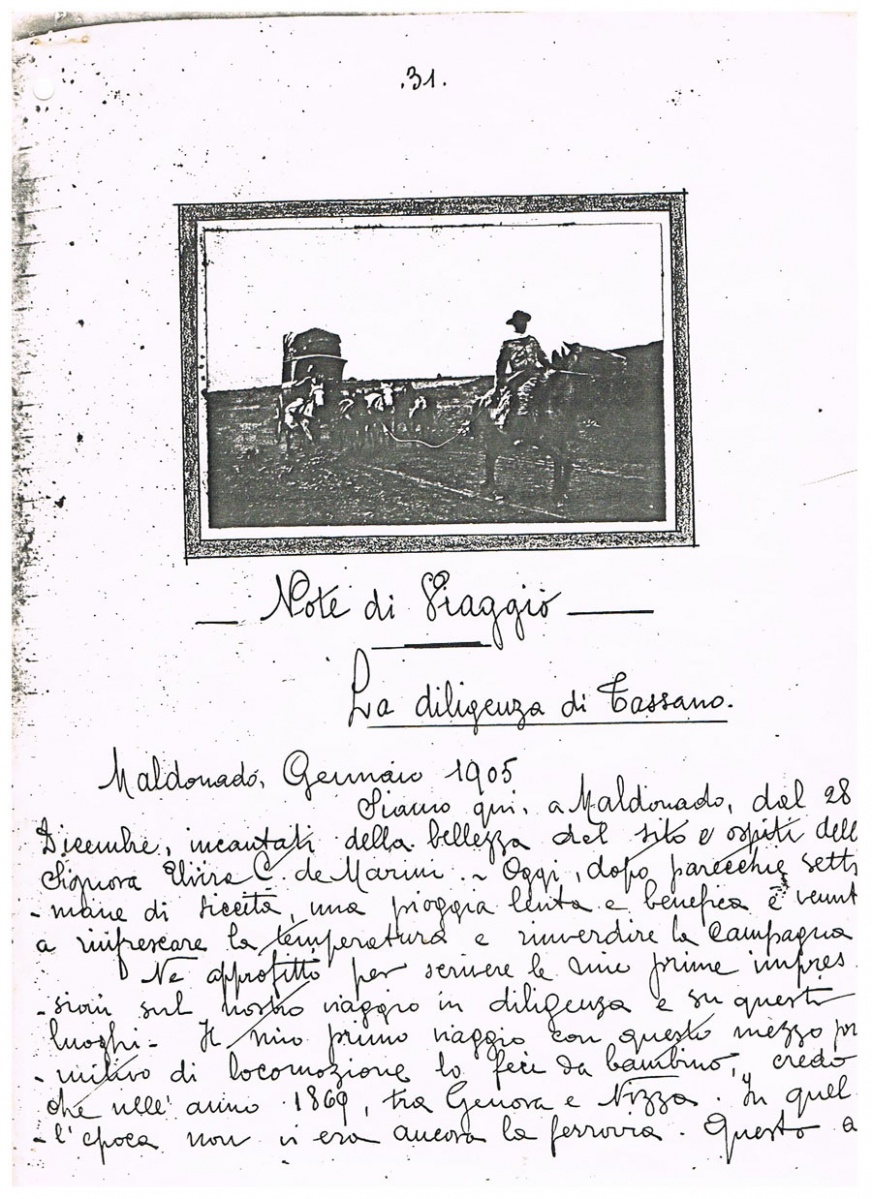 .31.
— Note di Viaggio —
La diligenza di Tassano.
Maldonado, Gennaio 1905
Siamo qui, a Maldonado, dal 28
Dicembre, incantati della bellezza del sito e ospiti dell
Signora Elvira C. de Marini. - Oggi, dopo parecchie setti
- mane di siccità, una pioggia lenta e benefica è venut
a rinfrescare la temperatura e rinverdire la Campagna
Ne approfitto per scrivere le mie prime impres
- sioni sul nostro viaggio in diligenza e su questi
luoghi - Il mio primo viaggio con questo mezzo pri
- mitivo di locomozione lo feci da bambino, credo
che nell'anno 1869, tra Genova e Nizza. In quel
- l'epoca non vi era ancora la ferrovia. Questo a